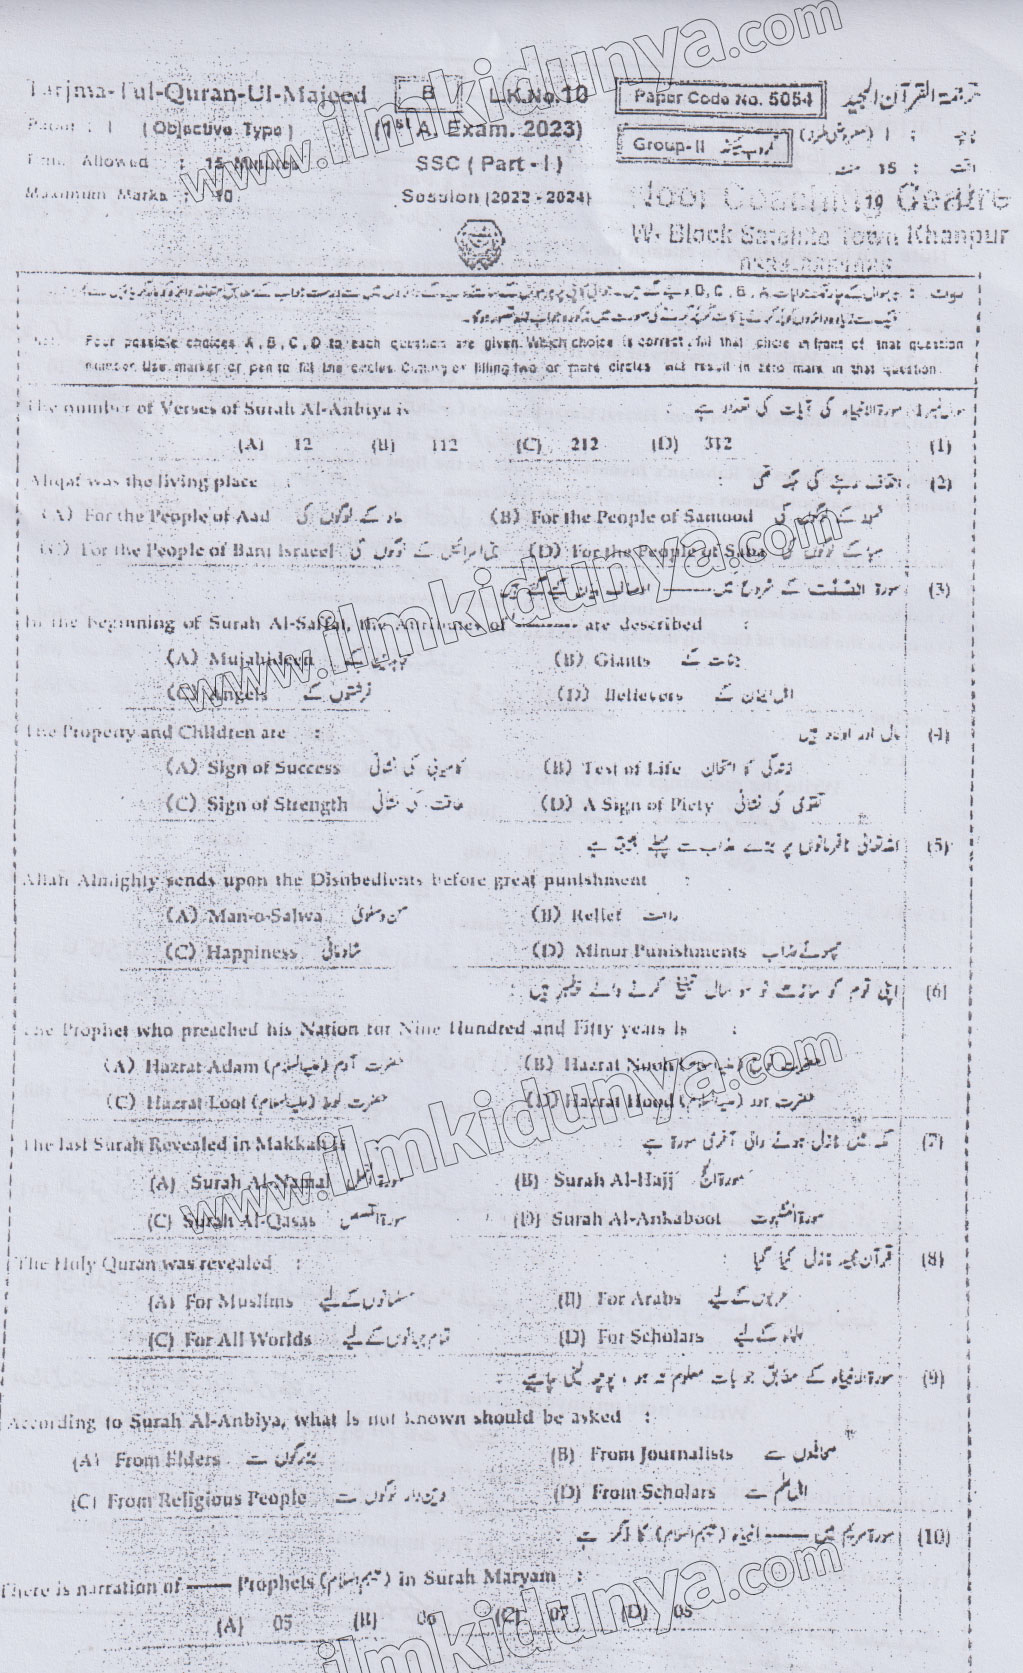 Tarjma-Tul-Quran-Ul-Majeed B L.K.No.10 Paper Code No. 5054 ترجمۃ القرآن المجید
Paper : I (Objective Type) (1st A. Exam. 2023) پرچہ : I (معروضی طرز)
Time Allowed : 15 Minutes SSC ( Part - I ) Group-II گروپ وقت : 15 منٹ
Maximum Marks : 10 Session (2022 - 2024) 10
Noor Coaching Centre
W- Block Satelite Town Khanpur
Note: Four possible choices A, B, C, D to each question are given. Which choice is correct, fill that circle in front of that question
number. Use marker or pen to fill the circles. Cutting or filling two or more circles will result in zero mark in that question.
The number of Verses of Surah Al-Anbiya is : سوال نمبر 1 سورۃ الانبیاء کی آیات کی تعداد ہے
(A) 12 (B) 112 (C) 212 (D) 312 (1)
Ahqaf was the living place : احقاف رہنے کی جگہ تھی : (2)
(A) For the People of Aad عاد کے لوگوں کی (B) For the People of Samood ثمود کے لوگوں کی
(C) For the People of Bani Israeel بنی اسرائیل کے لوگوں کی (D) For the People of Saba سبا کے لوگوں کی
سورۃ الصّٰفّٰت کے شروع میں ——— اوصاف بیان کیے گئے ہیں (3)
In the beginning of Surah Al-Saffat, the Attributes of ——— are described :
(A) Mujahideen مجاہدین کے (B) Giants جنات کے
(C) Angels فرشتوں کے (D) Believers اہل ایمان کے
The Property and Children are : مال اور اولاد ہیں (4)
(A) Sign of Success کامیابی کی نشانی (B) Test of Life زندگی کا امتحان
(C) Sign of Strength طاقت کی نشانی (D) A Sign of Piety تقویٰ کی نشانی
اللہ تعالیٰ نافرمانوں پر بڑے عذاب سے پہلے بھیجتا ہے (5)
Allah Almighty sends upon the Disobedients before great punishment :
(A) Man-o-Salwa من و سلویٰ (B) Relief راحت
(C) Happiness شادمانی (D) Minor Punishments چھوٹے عذاب
اپنی قوم کو ساڑھے نو سو سال تبلیغ کرنے والے پیغمبر ہیں : (6)
The Prophet who preached his Nation for Nine Hundred and Fifty years is :
(A) Hazrat Adam (علیہ السلام) حضرت آدم (علیہ السلام) (B) Hazrat Nooh (علیہ السلام) حضرت نوح
(C) Hazrat Loot (علیہ السلام) حضرت لوط (D) Hazrat Hood (علیہ السلام) حضرت ہود
The last Surah Revealed in Makkah is : مکہ میں نازل ہونے والی آخری سورۃ ہے (7)
(A) Surah Al-Namal سورۃ النمل (B) Surah Al-Hajj سورۃ الحج
(C) Surah Al-Qasas سورۃ القصص (D) Surah Al-Ankaboot سورۃ العنکبوت
The Holy Quran was revealed : قرآن مجید نازل کیا گیا : (8)
(A) For Muslims مسلمانوں کے لیے (B) For Arabs عربوں کے لیے
(C) For All Worlds تمام جہانوں کے لیے (D) For Scholars علماء کے لیے
سورۃ الانبیاء کے مطابق جو بات معلوم نہ ہو ، پوچھ لینی چاہیے : (9)
According to Surah Al-Anbiya, what is not known should be asked :
(A) From Elders بزرگوں سے (B) From Journalists صحافیوں سے
(C) From Religious People دین دار لوگوں سے (D) From Scholars اہل علم سے
سورۃ مریم میں ——— انبیاء (علیہم السلام) کا ذکر ہے (10)
There is narration of ——— Prophets (علیہم السلام) in Surah Maryam :
(A) 05 (B) 06 (C) 07 (D) 08
www.ilmkidunya.com
www.ilmkidunya.com
www.ilmkidunya.com
ilmkidunya.com